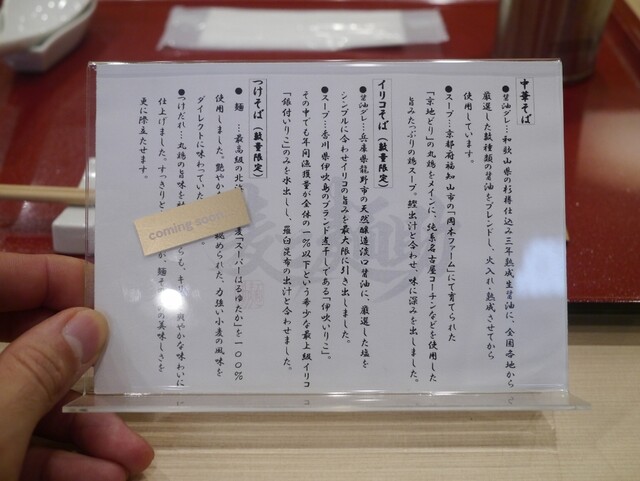 中華そば
●醤油ダレ…和歌山県の杉樽仕込み三年熟成生醤油に、全国各地から
厳選した数種類の醤油をブレンドし、火入れ・熟成させてから
使用しています。
●スープ…京都府福知山市の「岡本ファーム」にて育てられた
「京地どり」の丸鶏をメインに、純系名古屋コーチンなどを使用した
旨みたっぷりの鶏スープ。鰹出汁と合わせ、味に深みを出しました。
イリコそば(数量限定)
●醤油ダレ…兵庫県龍野市の天然醸造淡口醤油に、厳選した塩を
シンプルに合わせイリコの旨みを最大限に引き出しました。
●スープ…香川県伊吹島のブランド煮干しである「伊吹いりこ」。
その中でも年間漁獲量が全体の一%以下という希少な最上級イリコ
「銀付いりこ」のみを水出しし、羅臼昆布の出汁と合わせました。
つけそば(数量限定)
●麺…最高級の北海 麦「スーパーはるゆたか」を一〇〇%
使用しました。艶やか 秘められた、力強い小麦の風味を
ダイレクトに味わっていた
●つけだれ…丸鶏の旨味を らも、キリ 爽やかな味わいに
仕上げました。すっきりと が、麺そ の美味しさを
更に際立たせます。
coming soon